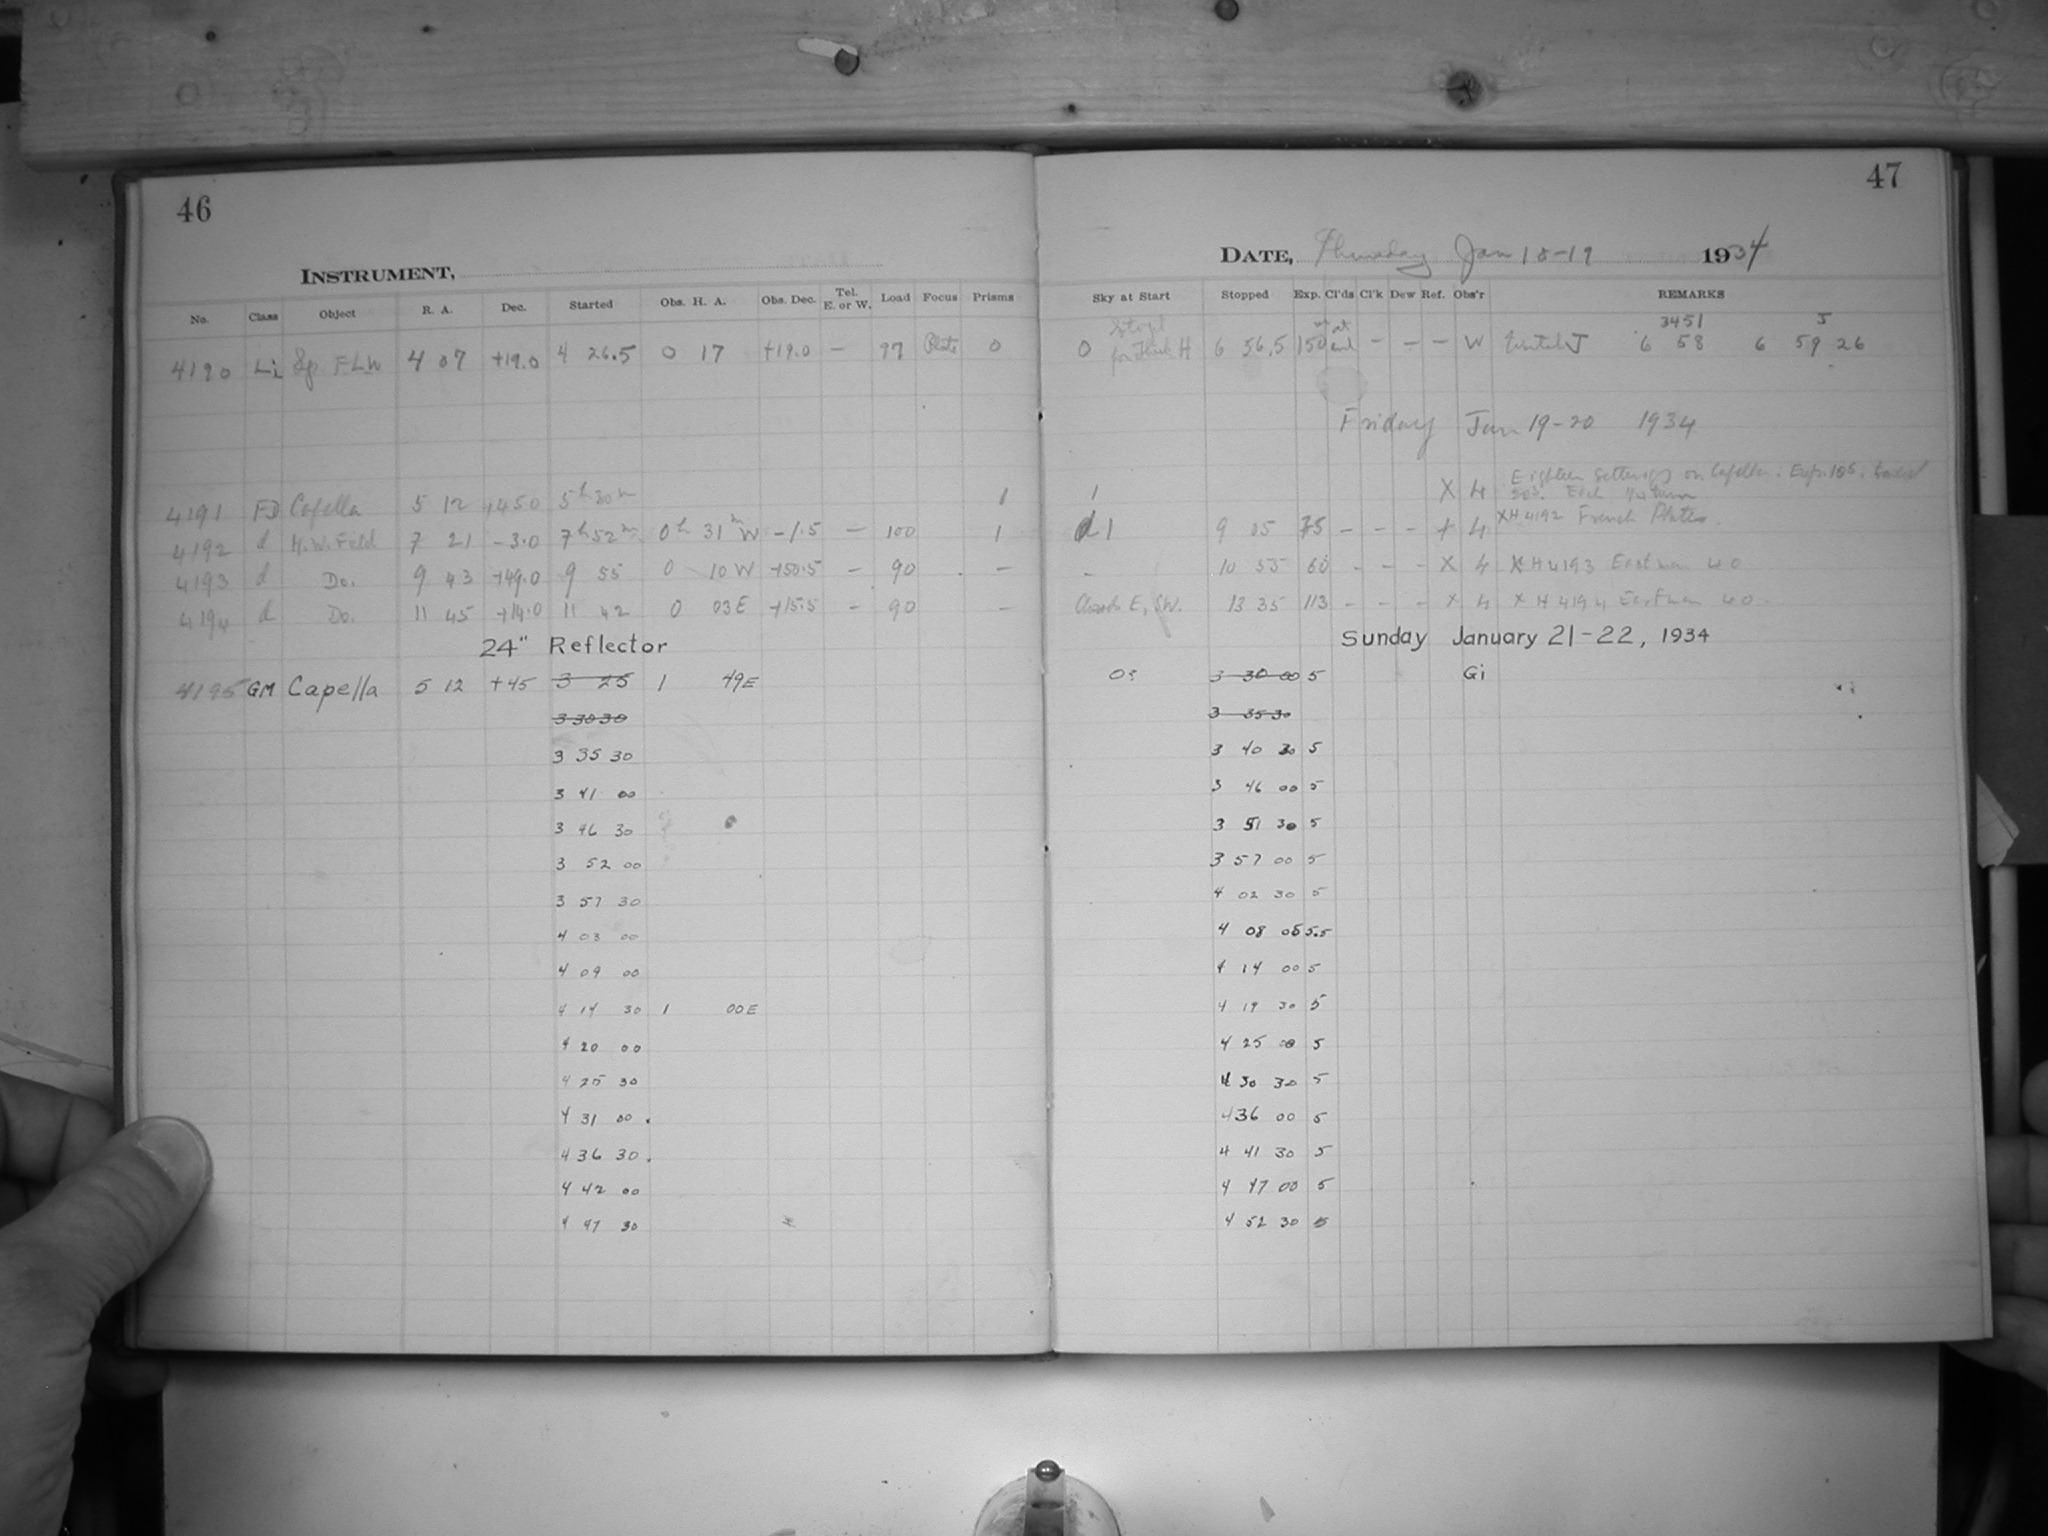 46
INSTRUMENT,
No. Class Object R. A. Dec. Started Obs. H. A. Obs. Dec. Tel. E. or W. Load Focus Prisms
4190 Li Sp. FLW 4 07 +19.0 4 26.5 0 17 +19.0 – 97 Plate 0
4191 FD Capella 5 12 +450 5h 30m 1
4192 d H.W. Field 7 21 -3.0 7h 52m 0h 31m W -1.5 – 100 1
4193 d Do. 9 43 +49.0 9 55 0 10 W +50.5 – 90 –
4194 d Do. 11 45 +14.0 11 42 0 03 E +15.5 – 90 –
24" Reflector
4195 GM Capella 5 12 +45 3 25 1 49E
3 30 30
3 35 30
3 41 00
3 46 30
3 52 00
3 57 30
4 03 00
4 09 00
4 14 30 1 00E
4 20 00
4 25 30
4 31 00 .
4 36 30 .
4 42 00
4 47 30
47
DATE, Thursday Jan 18-19 1934
Sky at Start Stopped Exp. Cl'ds Cl'k Dew Ref. Obs'r REMARKS
0 for H 6 56.5 150 at end – – – W J 6 58 6 59 26
3451 J
Friday Jan 19-20 1934
1 X 4 Eighteen Settings on Capella. Exp. 10s.
Each turn
d1 9 05 75 – – – + 4 XH4192 French Plates
– 10 55 60 – – – X 4 XH4193 Eastman 40
Clouds E, SW. 13 35 113 – – – X 4 XH4194 Eastman 40
Sunday January 21-22, 1934
0? 3 30 00 5 Gi
3 35 30
3 40 30 5
3 46 00 5
3 51 30 5
3 57 00 5
4 02 30 5
4 08 05 5.5
4 14 00 5
4 19 30 5
4 25 00 5
4 30 30 5
4 36 00 5
4 41 30 5
4 47 00 5
4 52 30 5